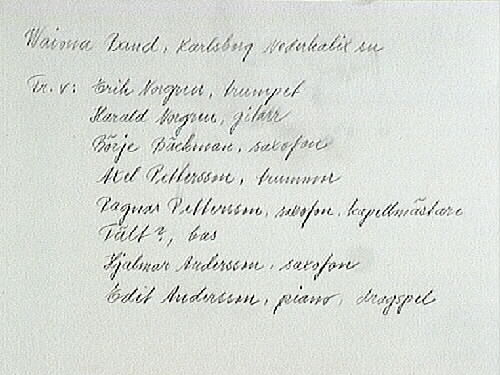 Waiona Band, Karlsborg Nederkalix sn
Fr. v: Erik Norgren, trumpet
Harald Norgren, gitarr
Börje Bäckman, saxofon
Axel Pettersson, trummor
Ragnar Pettersson, saxofon, kapellmästare
Fält?, bas
Hjalmar Andersson, saxofon
Edit Andersson, piano, dragspel